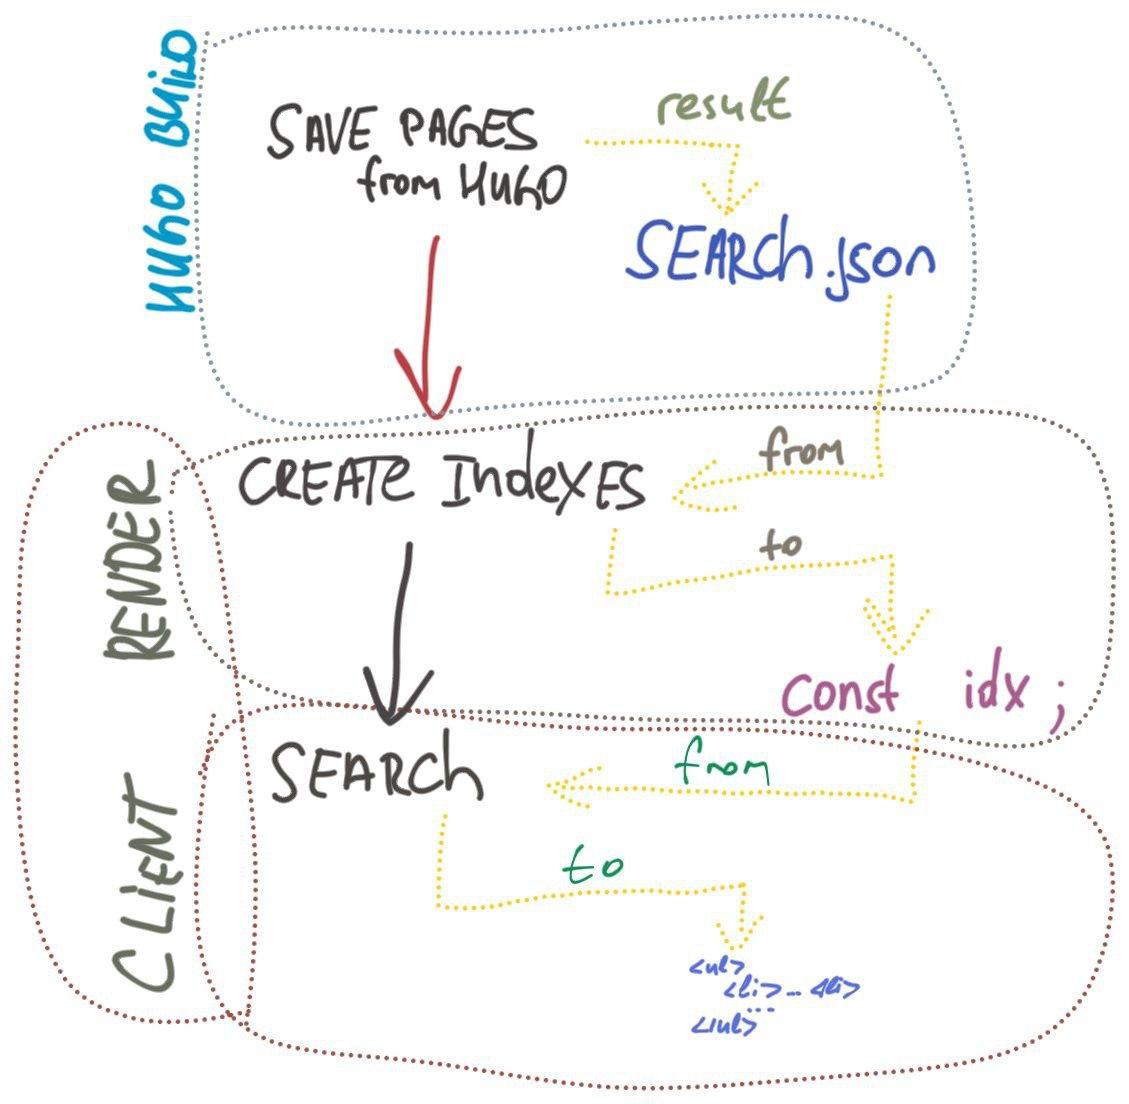 HUGO BUILD
SAVE PAGES
from HUGO
result
SEARCh.json
RENDER
CREATE IndexES
from
to
const idx ;
CLiENT
SEARCh
from
to
<ul>
<li>... <li>
...
</ul>